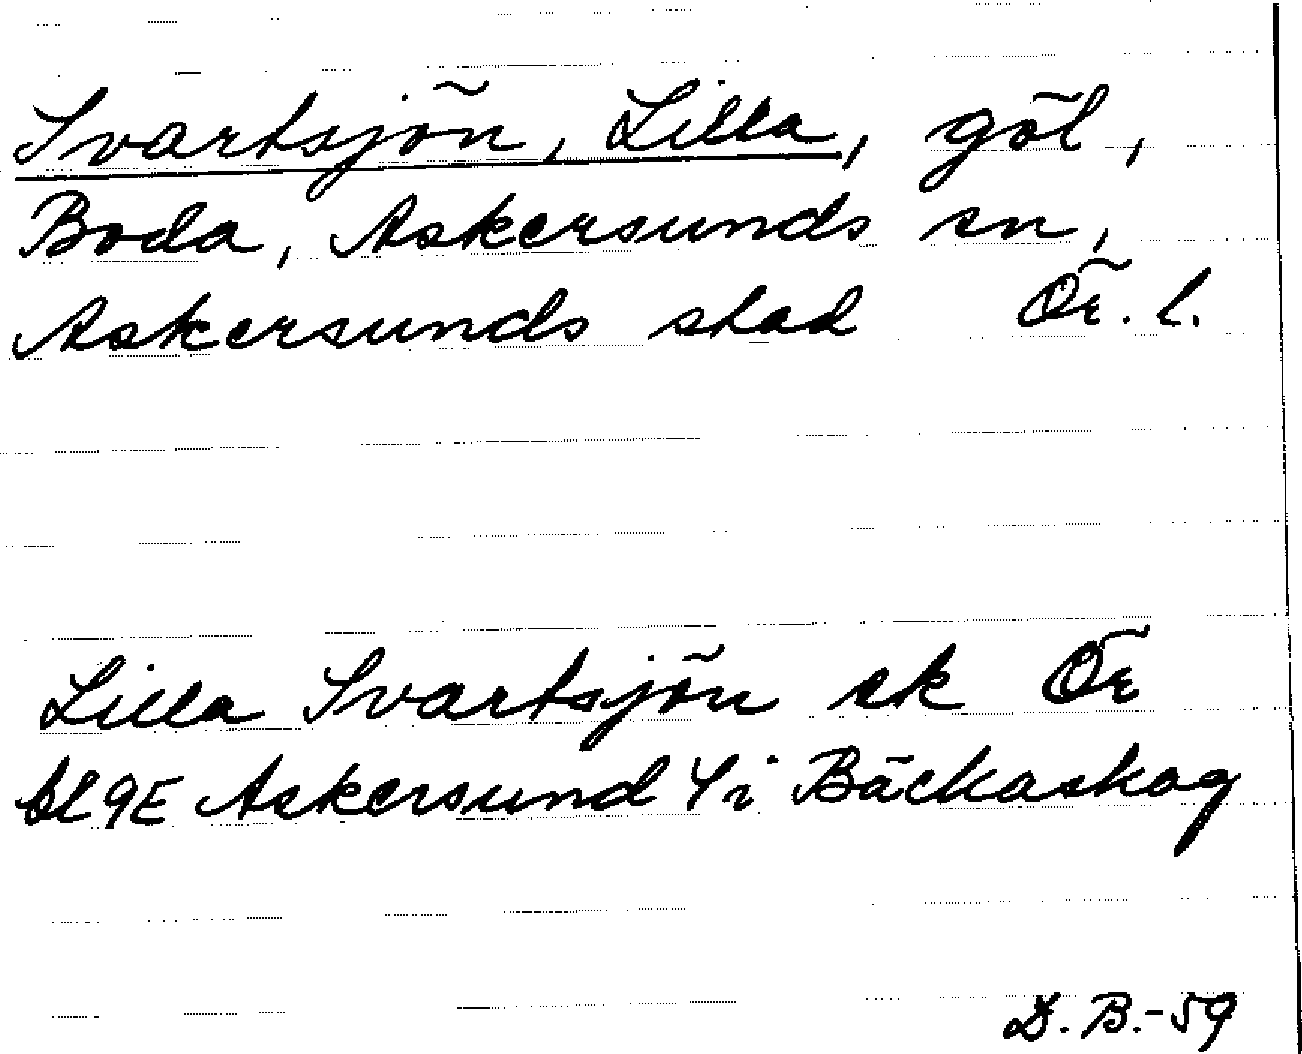 Svartsjön, Lilla, göl,
Boda, Askersunds sn,
Askersunds stad Ör. l.
Lilla Svartsjön ek Ör
9E Askersund 4 i Bäckaskog
D. B.-59